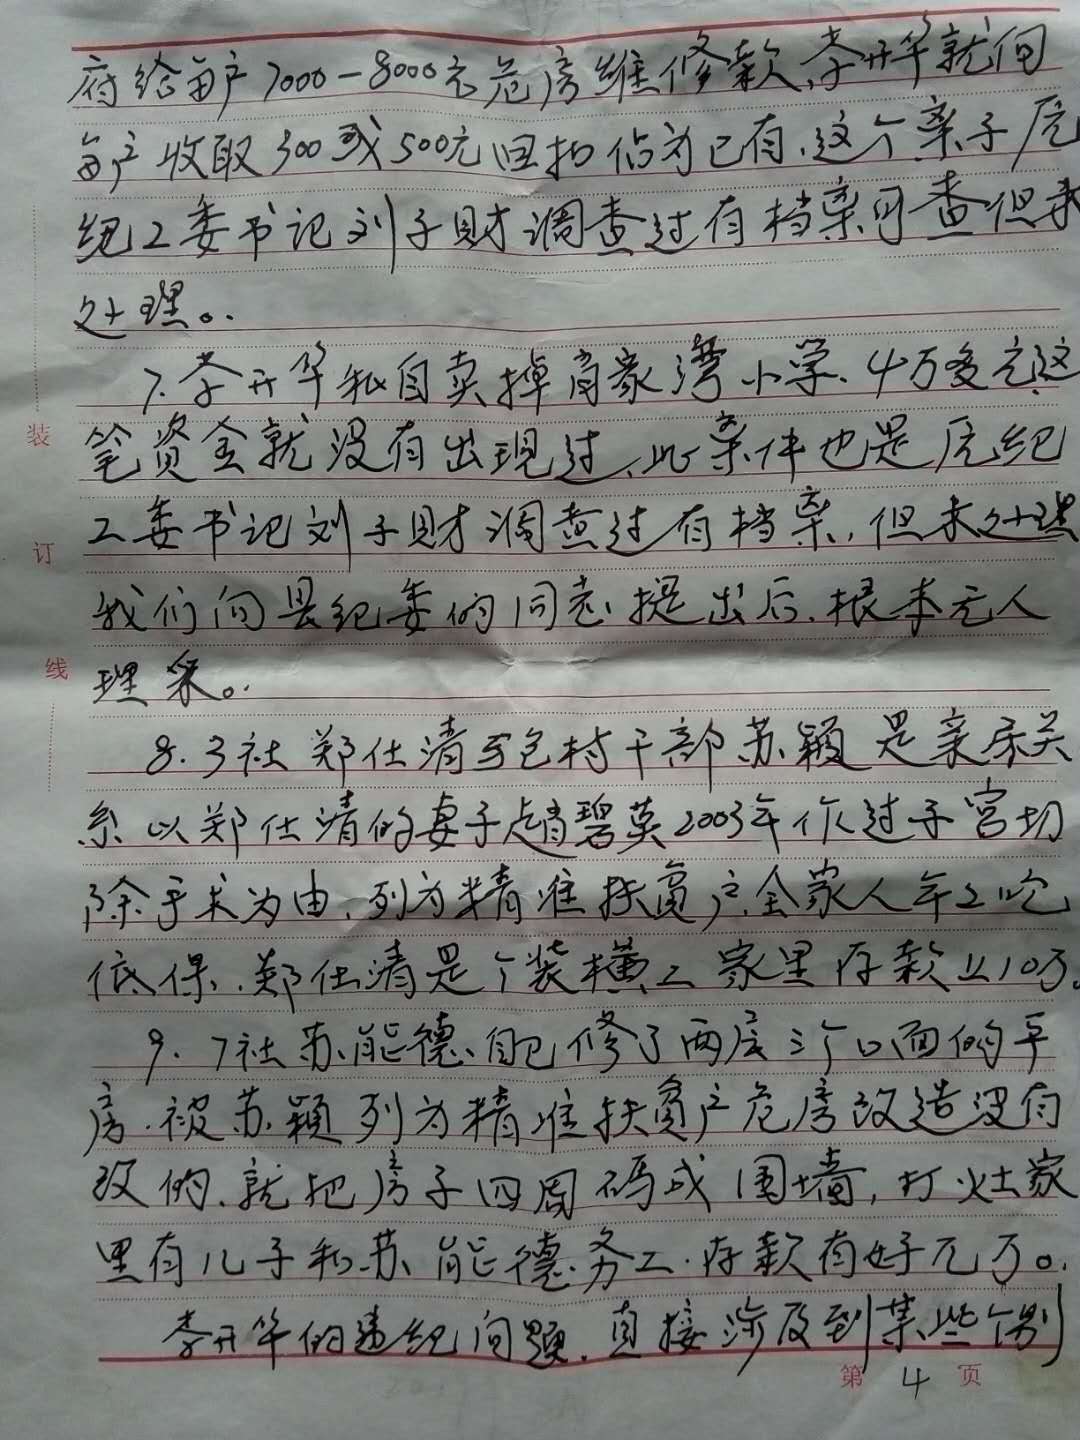 府给每户7000-8000元危房维修款,李开华就向
每户收取300或500元回扣佔为已有,这个案子原
纪工委书记刘子财调查过有档案可查但未
处理。
7.李开华私自卖掉肖家湾小学、4万多元这
笔资金就没有出现过、此案件也是原纪
工委书记刘子财调查过有档案,但未处理
我们向县纪委的同志提出后、根本无人
理采。
8.3社郑仕清与包村干部苏颖是亲系关
系以郑仕清的妻子赵碧英2003年作过子宫切
除手术为由、列为精准扶贫户全家人年年吃
低保、郑仕清是个装横工家里存款上10万。
9.7社苏能德、自己修了两层三个口面的平
房.被苏颖列为精准扶贫户危房改造没有
改的、就把房子四周码成围墙,打灶家
里有儿子和苏能德务工.存款有好几万。
李开华的违纪问题、直接涉及到某些个别
装
订
线
第4页